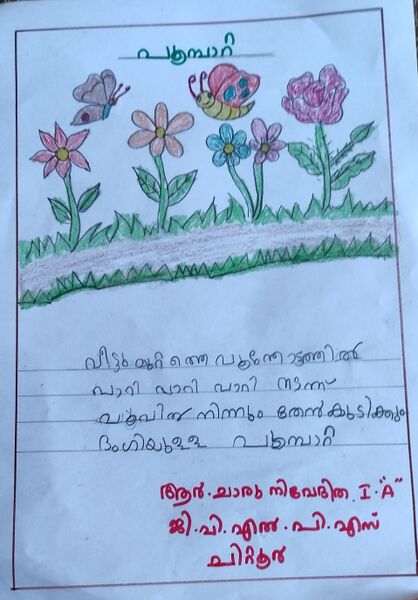 പൂമ്പാറ്റ
വീട്ടുമുറ്റത്തെ പൂന്തോട്ടത്തിൽ
പാറി പാറി പാറി നടന്ന്
പൂവിൽ നിന്നും തേൻകുടിക്കും
ഭംഗിയുള്ള പൂമ്പാറ്റ
ആർ. ചാരു നിവേദിത. I. "A"
ജി. പി. എൽ. പി. എസ്
ചിറ്റൂർ